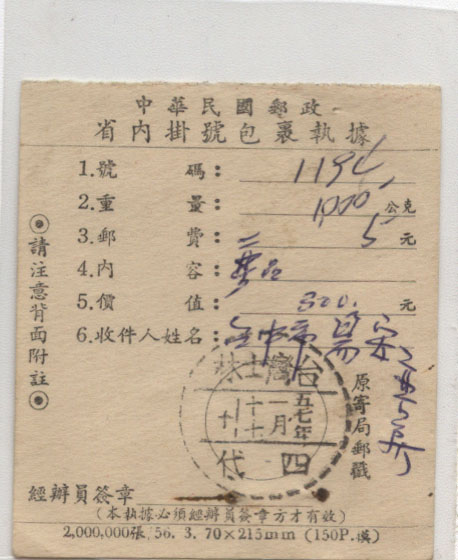 中華民國郵政
省內掛號包裹執據
1.號碼：
2.重量： 公克
3.郵費： 5 元
4.內容：
5.價值： 320. 元
6.收件人姓名：
◎請注意背面附註◎
台灣士林
五七年
一月
十七
四代
原寄局郵戳
經辦員簽章
(本執據必須經辦員簽章方才有效)
2,000,000張 56. 3. 70×215mm (150P.模)